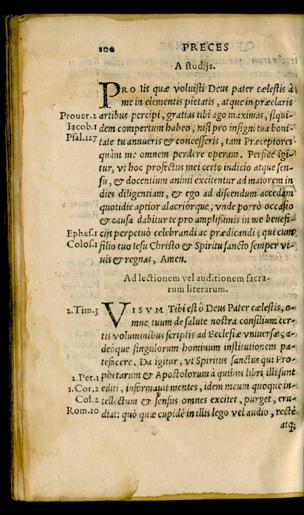 100 PRECES
A studijs.
PRO iis quæ voluisti Deus pater cælestis à
me in elementis pietatis, atque in præclaris
Prouer.2 artibus percipi, gratias tibi ago maximas, siqui-
Iacob.1 dem compertum habeo, nisi pro insigni tua boni-
Psal.127 tate tu annueris & concesseris, tam Præceptores
quàm me omnem perdere operam. Perfice igi-
tur, vt hoc profectus mei certo indicio atque sen-
su, & docentium animi excitentur ad maiorem in
dies diligentiam, & ego ad discendum accedam
quotidie aptior alacriorque, vnde porrò occasio
& causa dabitur te pro amplissimis in me benefi-
Ephes.1 cijs perpetuò celebrandi ac prædicandi; qui cum
Colos.1 filio tuo Iesu Christo & Spiritu sancto semper vi-
uis & regnas, Amen.
Ad lectionem vel auditionem sacra-
rum literarum.
2.Tim.3 VISVM Tibi est ô Deus Pater cælestis, o-
mne tuum de salute nostra consilium cer-
tis voluminibus scriptis ad Ecclesiæ vniuersæ, a-
deóque singulorum hominum institutionem pa-
tefacere. Da igitur, vt Spiritus sanctus qui Pro-
2.Pet.1 phetarum & Apostolorum à quibus libri illi sunt
1.Cor.2 editi, informauit mentes, idem meum quoque in-
Col.2 tellectum & sensus omnes excitet, purget, eru-
Rom.10 diat: quò quæ cupidè in illis lego vel audio, rectè
atq;